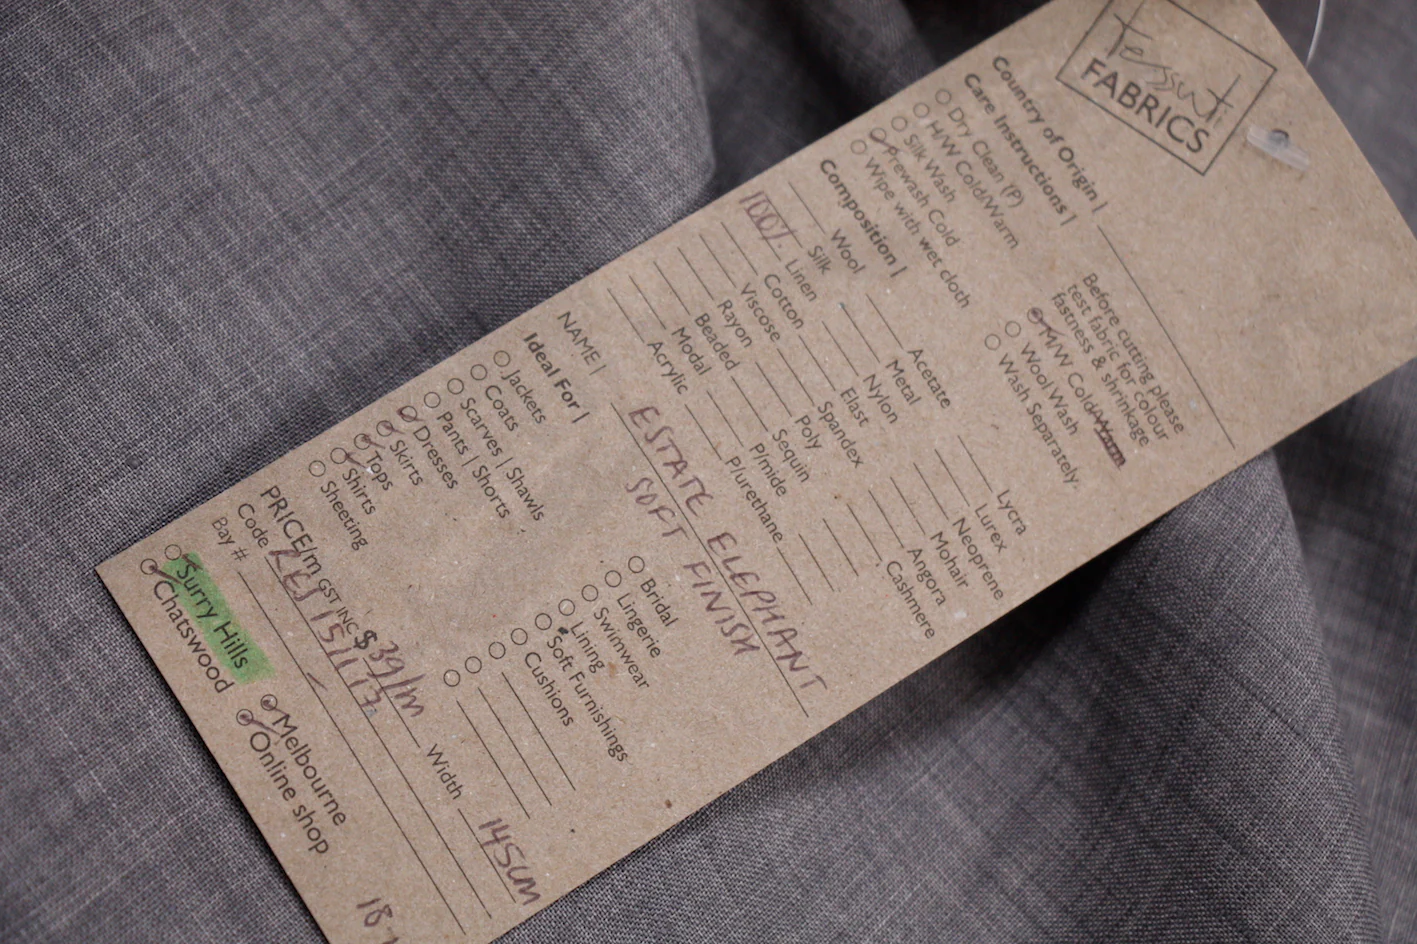 Tessuti
FABRICS
Country of Origin |
Care Instructions |
Dry Clean (P)
H/W Cold/Warm
Silk Wash
Prewash Cold
Wipe with wet cloth
Before cutting please
test fabric for colour
fastness & shrinkage
M/W Cold/Warm
Wool Wash
Wash Separately.
Composition |
Wool
Silk
100% Linen
Cotton
Viscose
Rayon
Beaded
Modal
Acrylic
Acetate
Metal
Nylon
Elast
Spandex
Poly
Sequin
P/mide
P/urethane
Lycra
Lurex
Neoprene
Mohair
Angora
Cashmere
NAME | ESTATE ELEPHANT
SOFT FINISH
Ideal For |
Jackets
Coats
Scarves | Shawls
Pants | Shorts
Dresses
Skirts
Tops
Shirts
Sheeting
Bridal
Lingerie
Swimwear
Lining
Soft Furnishings
Cushions
PRICE/m GST INC $39/m Width 145cm
Code
Bay #
Surry Hills
Chatswood
Melbourne
Online shop